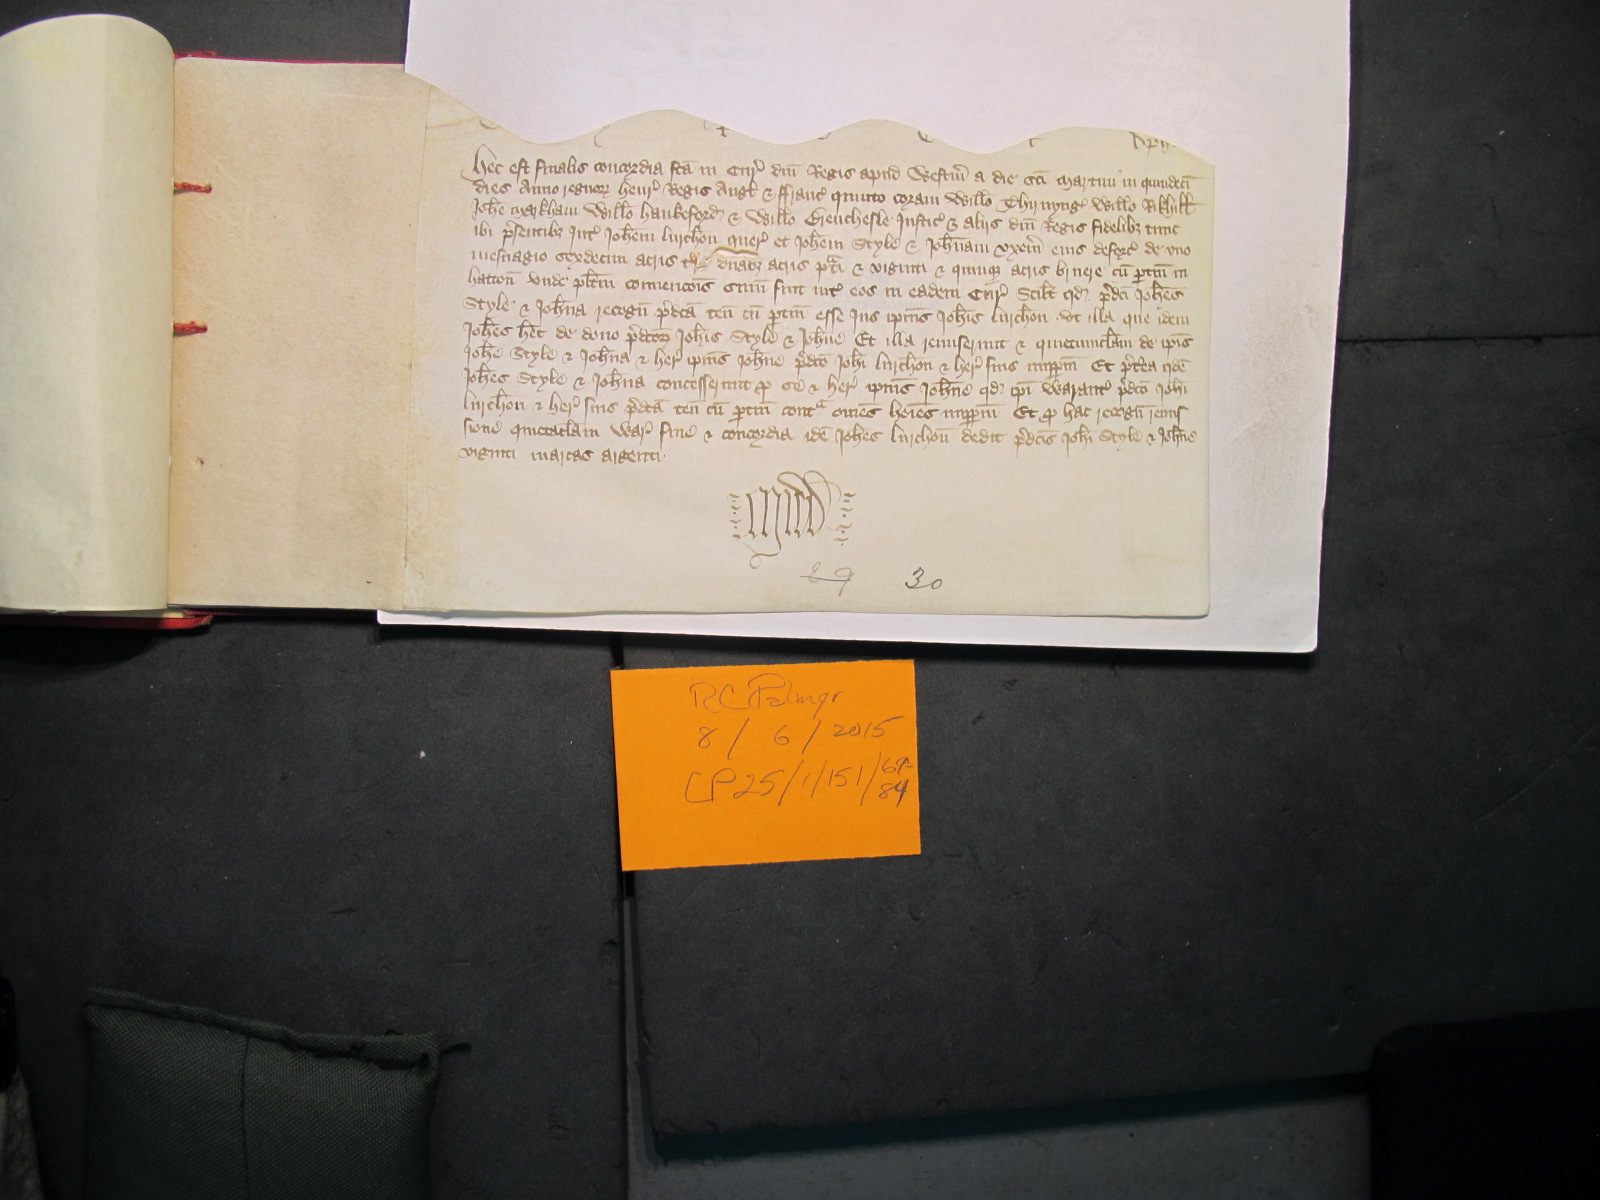 Hec est finalis concordia fcā in Cur' dnī Regis apud Westm̄ a die scī Martini in quindecī
dies Anno regnoꝝ Henr' Regis Angl' & ffranc' quinto coram Will̄o Thirnyng' Will̄o Rikhill
Joh̄e Markham Will̄o Hankeford' & Will̄o Brenchesle Justic' & aliis dnī Regis fidelibꝫ tunc
ibi p̄sentibꝫ Int' Joh̄em Lurchon quer' et Joh̄em Style & Joh̄nam vxem̄ eius deforc' de vno
mesuagio sexdecim acris t're duabꝫ acris p̃ti & viginti & quinqꝫ acris bruere cū ptin̄ in
Hatton̄ vnde plītm̄ conuencōis sum̄ fuit int' eos in eadem Cur' Scilt' qd' p̄dcī Joh̄es
Style & Joh̄na recogn̄ p̄dcā ten̄ cū ptin̄ esse Jus ip̄ius Joh̄is Lurchon vt illa que idem
Joh̄es h̄et de dono p̄dcōꝝ Joh̄is Style & Joh̄ne Et illa remiserunt & quietumclam̄ de ip̄is
Joh̄e Style & Joh̄na & her' ip̄ius Joh̄ne p̄dcō Joh̄i Lurchon & her' suis imppm̄ Et p̄t'ea ijdē
Joh̄es Style & Joh̄na concesserunt ꝑ se & her' ip̄ius Joh̄ne qd' ip̄i Warant' p̄dcō Joh̄i
Lurchon & her' suis p̄dcā ten̄ cū ptin̄ contͣ om̄es hōies imppm̄ Et ꝑ hac recogn̄ remis
sione quietaclam̄ War' fine & concordia idē Joh̄es Lurchon̄ dedit p̄dcīs Joh̄i Style & Joh̄ne
viginti marcas argenti.
Midd'
29 30
RC Palmer
8 / 6 / 2015
CP25/1/151/69-
84